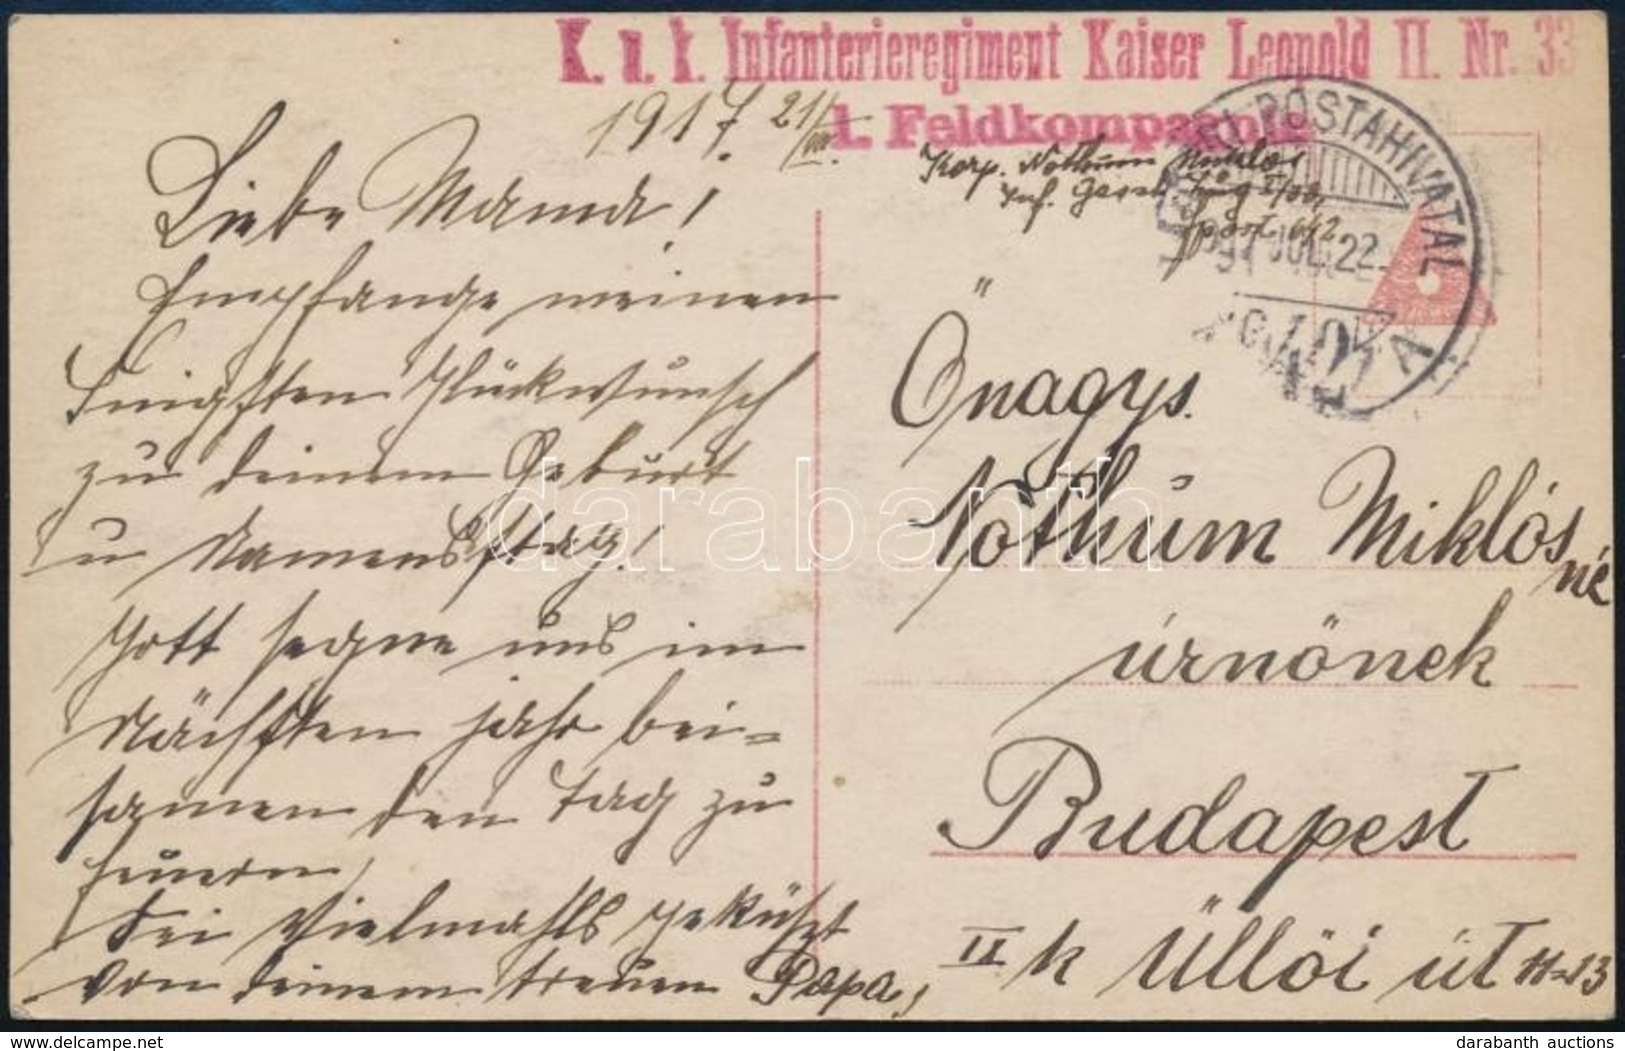 K. u. k. Infanterieregiment Kaiser Leopold II. Nr. 33
1. Feldkompagnie
1917 21/VII.
Korp. Nothum Miklós
Inf.
post 642
TÁBORI POSTAHIVATAL
917 JUL. 22
Liebe Mama!
Empfange meinen
Innigsten Glückwunsch
zu deinem Geburt
u Namensstag!
Gott segne uns im
Nächsten jahr bei-
samen den Tag zu
feuern,
Sei Vielmahls geküszt
von deinem treuen Papa,
Önagys.
Nothum Miklós
né
úrnőnek
Budapest
II k Üllői út 11-13
darabanth
hu.delcampe.net
darabanth auctions